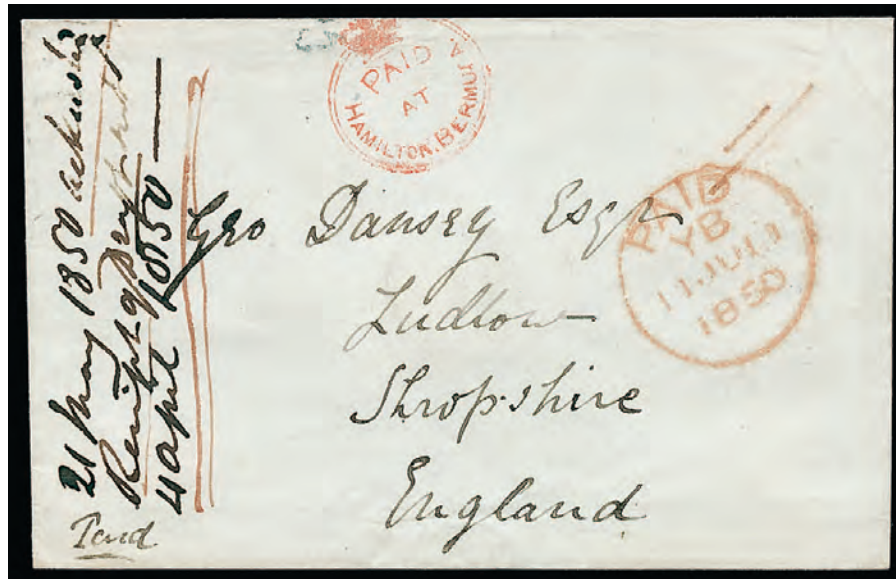 PAID
AT
HAMILTON. BERMUDA
PAID
YB
11 JU 11
1850
Geo Dansey Esqr
Ludlow
Shropshire
England
21 May 1850
Receipt of
4 April 1850
Paid